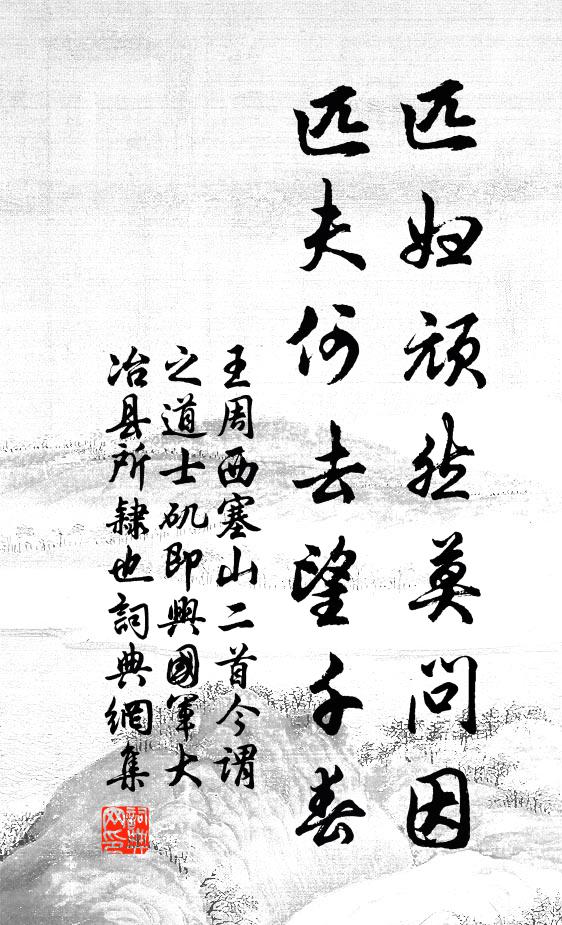 匹妇頑然莫問因
匹夫何去望千春
王周西塞山二首今謂
之道士矶即興國軍大
冶县所隸也詞典網集